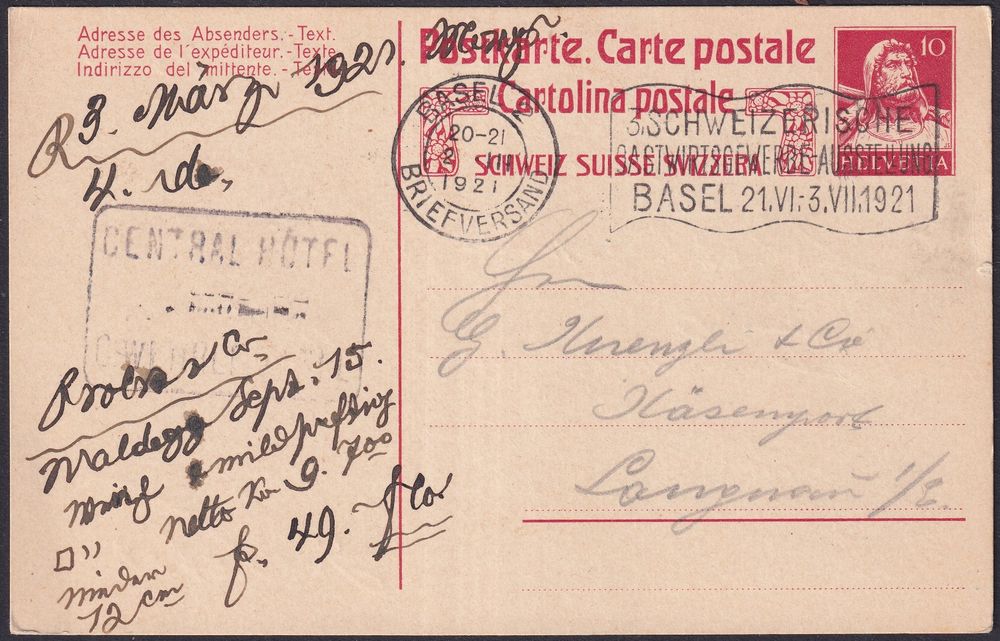 Adresse des Absenders.-Text.
Adresse de l'expéditeur.-Texte.
Indirizzo del mittente.-Testo.
Postkarte. Carte postale
Cartolina postale
SCHWEIZ SUISSE SVIZZERA
10
HELVETIA
BASEL 2
20-21
1921
BRIEFVERSAND
3. SCHWEIZERISCHE
GASTWIRTSGEWERBE-AUSSTELLUNG
BASEL 21.VI.-3.VII.1921
R 3. März 1921.
4. do.
CENTRAL HÔTEL
Co
Waldegg Sept. 15.
netto Ko 9. 700
f. 49. fco
nieder
12 cm
G. Kuenzli & Cie
Käseexport
Langnau i/E.